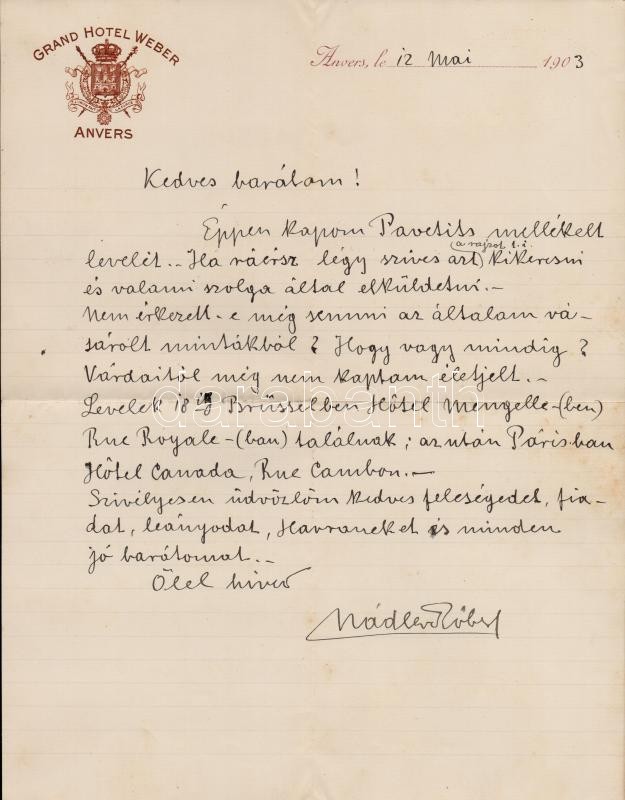 GRAND HOTEL WEBER
ANVERS
Anvers, le 12 Mai 1903
Kedves barátom!
Éppen kapom Pavetits mellékelt
levelét.. Ha ráérsz légy szíves azt (a rajzot t.i.) kikeresni
és valami szolga által elküldetni.-
Nem érkezett-e még semmi az általam vá-
sárolt mintákból? Hogy vagy mindig?
Várdaitól még nem kaptam életjelt..
Levelek 18 ig Brüsselben Hôtel Mengelle-(ben)
Rue Royale-(ban) találnak; azután Párisban
Hôtel Canada, Rue Cambon.-
Szivélyesen üdvözlöm kedves feleségedet, fia-
dat, leányodat, Havraneket is minden
jó barátomat..
Ölel hived
Nádler Róbert
darabanth